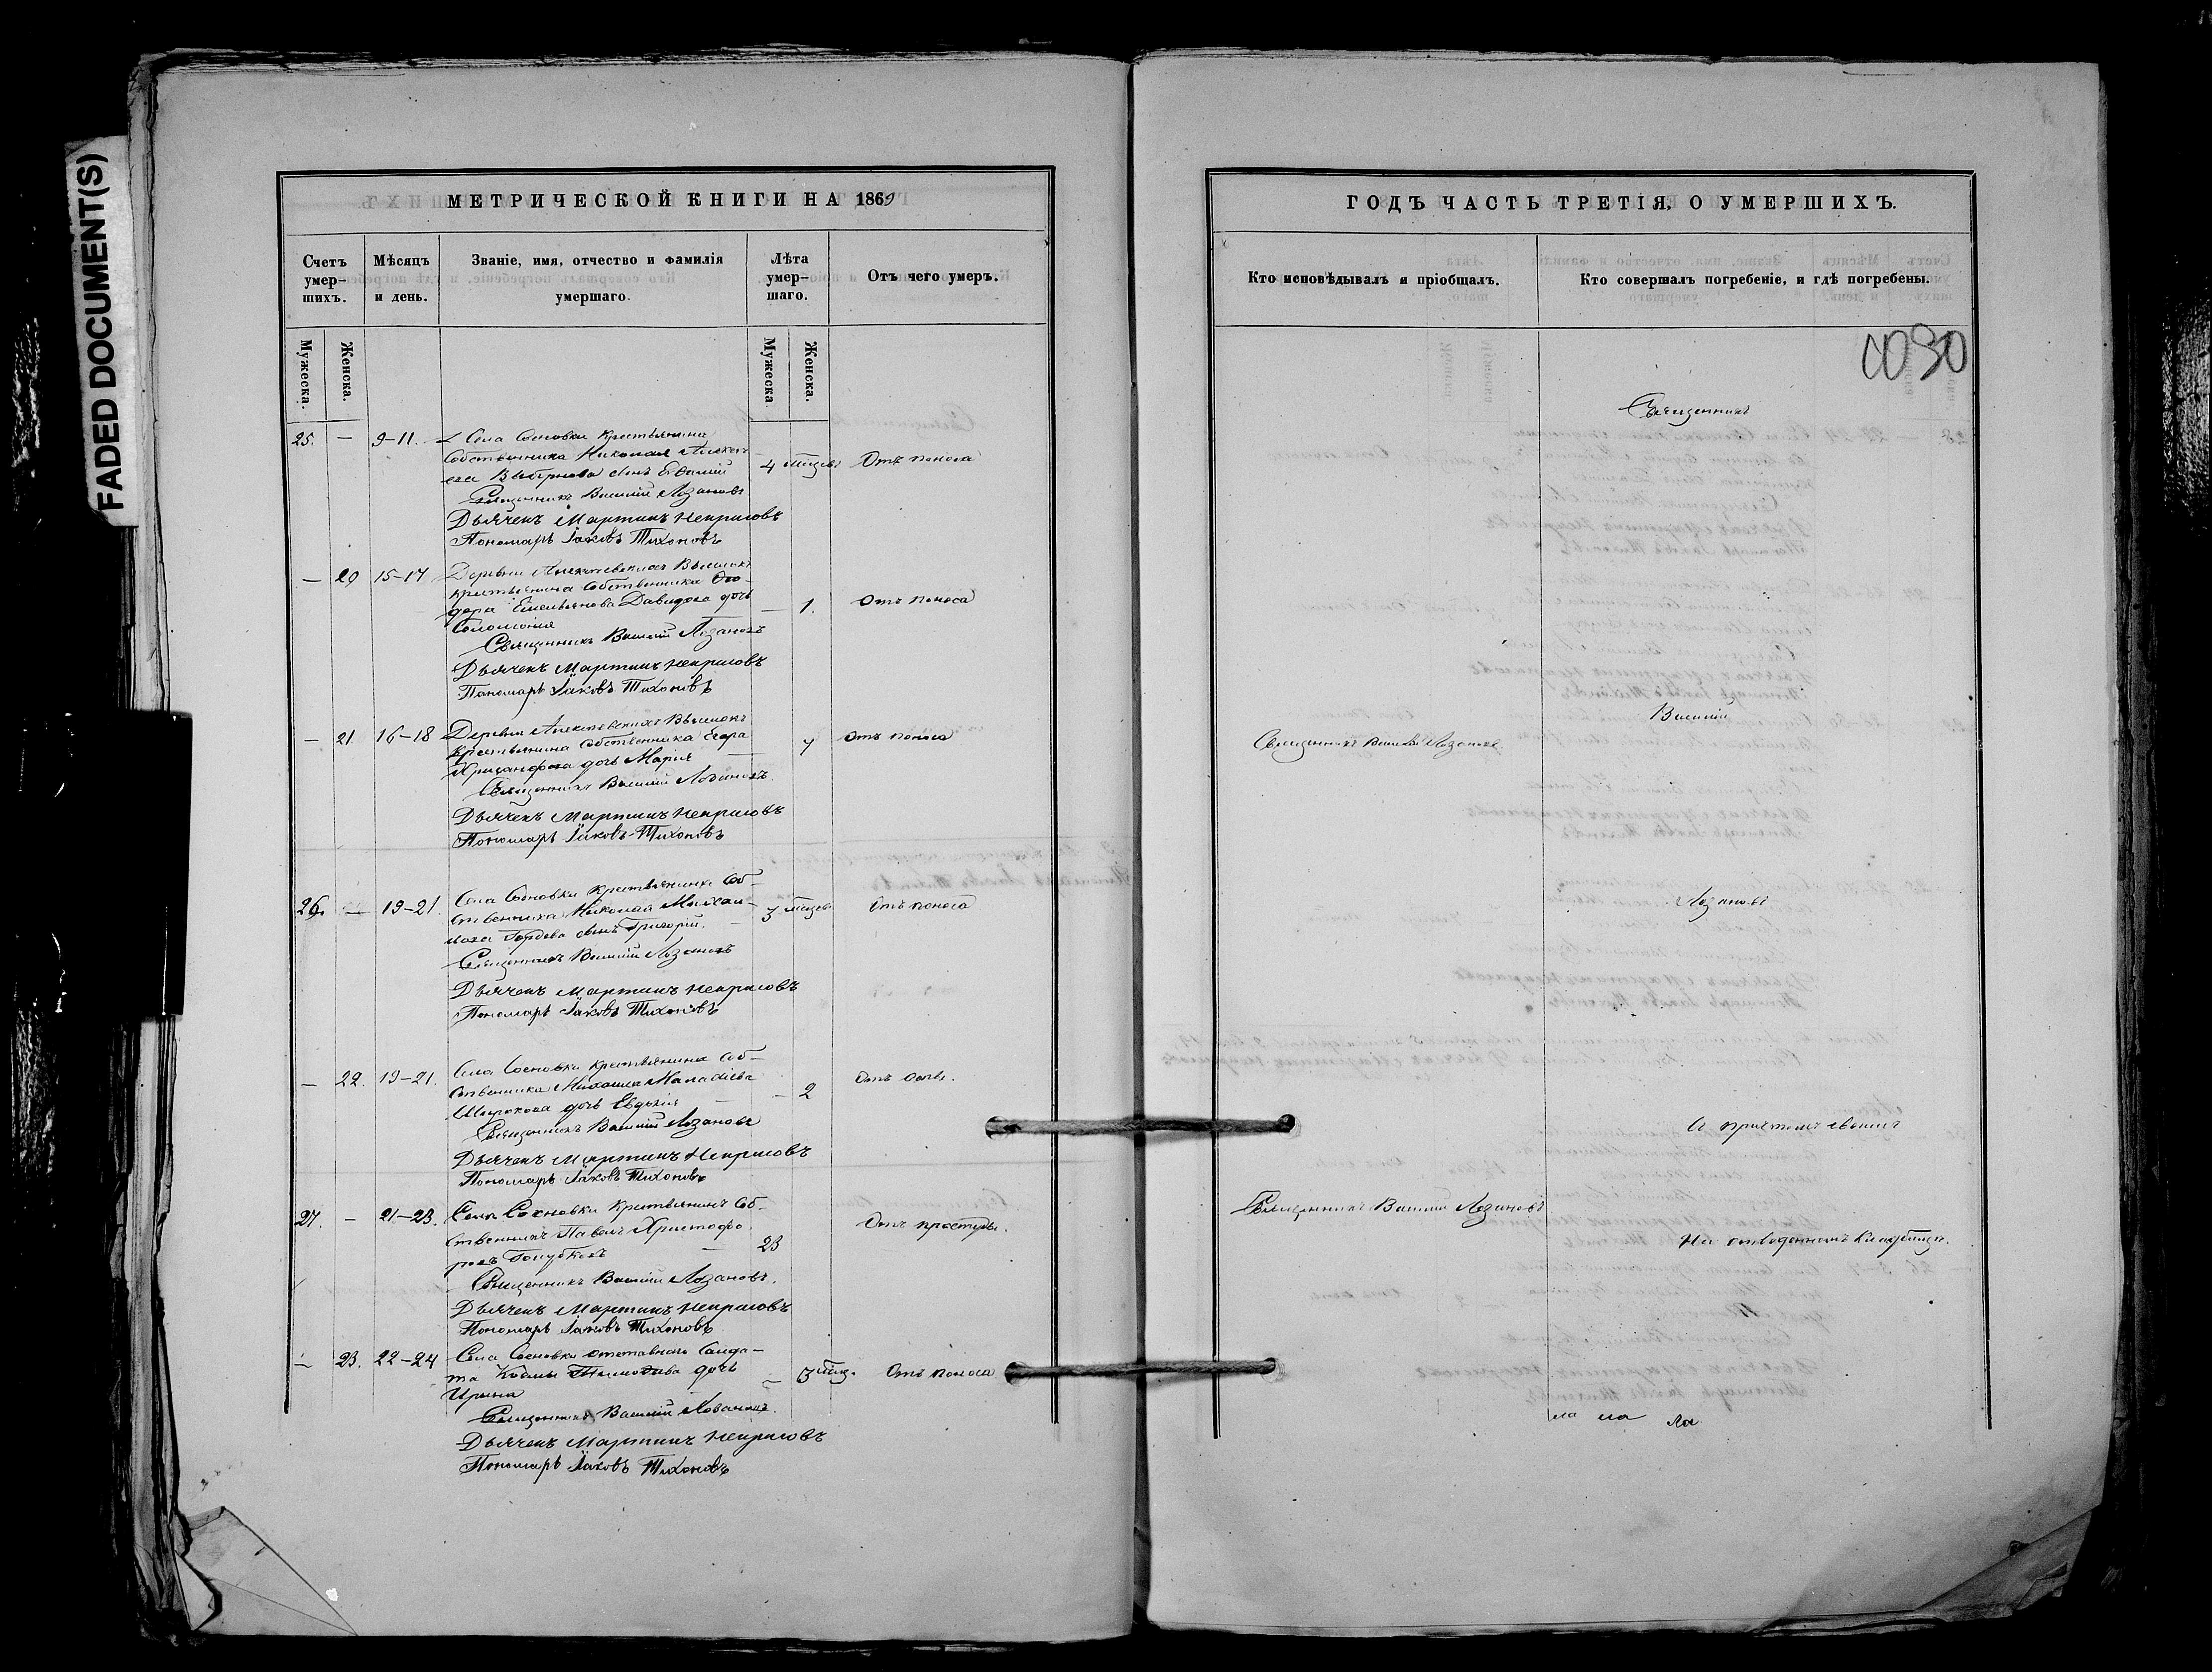 FADED DOCUMENT(S)
МЕТРИЧЕСКОЙ КНИГИ НА 1869
Счетъ умер-шихъ.
Мѣсяцъ и день.
Званіе, имя, отчество и фамилія умершаго.
Лѣта умер-шаго.
Отъ чего умеръ.
Мужеска.
Женска.
Мужеска
Женска.
25. — 9-11. Села Сосновки крестьянина
собственника Николая
сынъ Евѳимій 4 мѣсец. Отъ поноса
Священникъ Василій Лозановъ
Дьячекъ Мартинъ Некрасовъ
Пономарь Іаковъ Тихоновъ
— 20 15-17 Деревни Алексѣевскихъ Выселокъ
крестьянина собственника Ѳео-
дора Емельянова Давидова дочь — 1. Отъ поноса
Соломонія
Священникъ Василій Лозановъ
Дьячекъ Мартинъ Некрасовъ
Пономарь Іаковъ Тихоновъ
— 21. 16-18 Деревни Алексѣевскихъ Выселокъ
крестьянина собственника Егора — 7 Отъ поноса
Хрисанфова дочь Марія
Священникъ Василій Лозановъ.
Дьячекъ Мартинъ Некрасовъ
Пономарь Іаковъ Тихоновъ
26. — 19-21. Села Сосновки крестьянина соб-
ственника Николая Михаи- 3 мѣсец. Отъ поноса
лова Гордѣева сынъ Григорій.
Священникъ Василій Лозановъ
Дьячекъ Мартинъ Некрасовъ
Пономарь Іаковъ Тихоновъ
— 22. 19-21. Села Сосновки крестьянина соб-
ственника Михаила Малаѳіева — 2 Отъ оспы.
Широкова дочь Евдокія
Священникъ Василій Лозановъ
Дьячекъ Мартинъ Некрасовъ
Пономарь Іаковъ Тихоновъ
27. — 21-23. Села Сосновки крестьянинъ соб-
ственникъ Павелъ Христофо- 23 Отъ простуды.
ровъ Голубковъ
Священникъ Василій Лозановъ.
Дьячекъ Мартинъ Некрасовъ
Пономарь Іаковъ Тихоновъ
— 23. 22-24 Села Сосновки отставнаго солда-
та Козмы Тимоѳѣева дочь — 3 мѣс. Отъ поноса
Ирина
Священникъ Василій Лозановъ.
Дьячекъ Мартинъ Некрасовъ
Пономарь Іаковъ Тихоновъ
ГОДЪ ЧАСТЬ ТРЕТІЯ, О УМЕРШИХЪ.
Кто исповѣдывалъ и пріобщалъ.
Кто совершалъ погребеніе, и гдѣ погребены.
Священникъ
Василій
Священникъ Василій Лозановъ.
Лозановъ
Съ причтомъ своимъ
Священникъ Василій Лозановъ
На отведенномъ кладбищѣ.